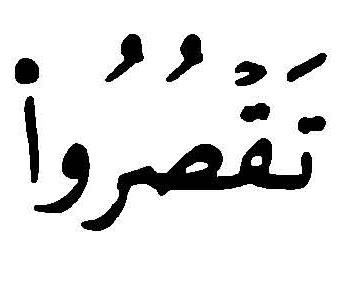 تَقْصُرُوا۟